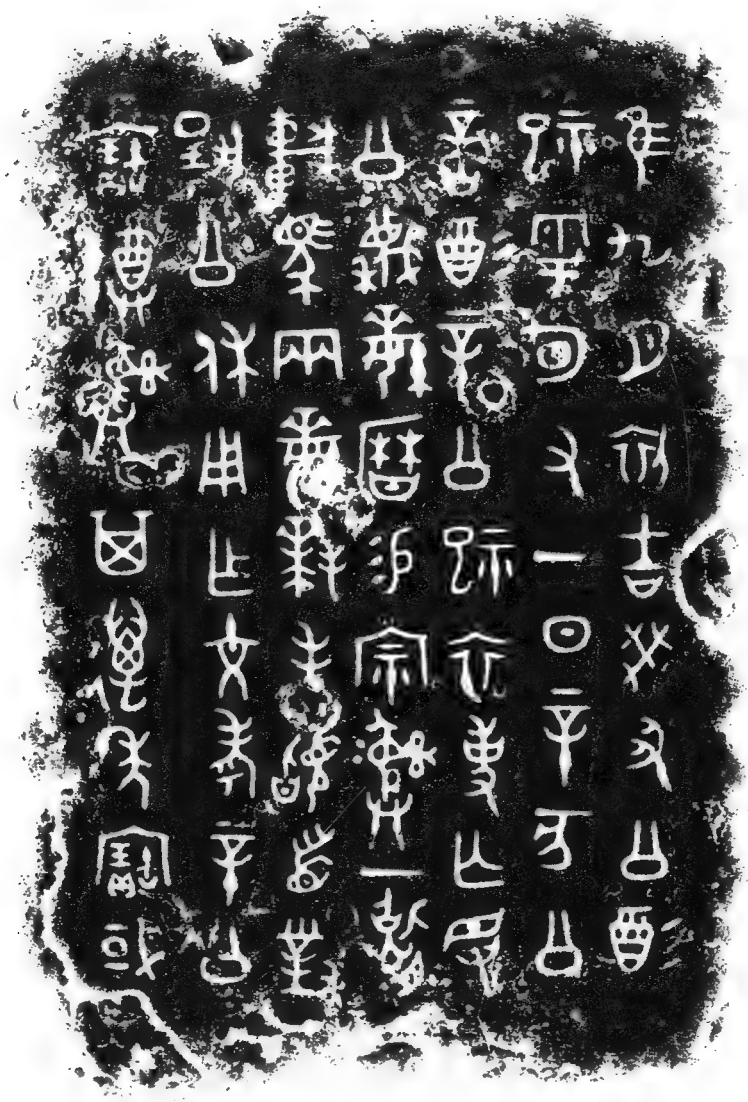 隹九月初吉癸丑公酻
祀雩旬又一日辛亥公
啻酻辛公祀衣事亡尤
公蔑繁曆易宗彝一肆
車馬兩繁拜手稽首對
揚公休用乍文考辛公
寶尊彝其萬年寶或